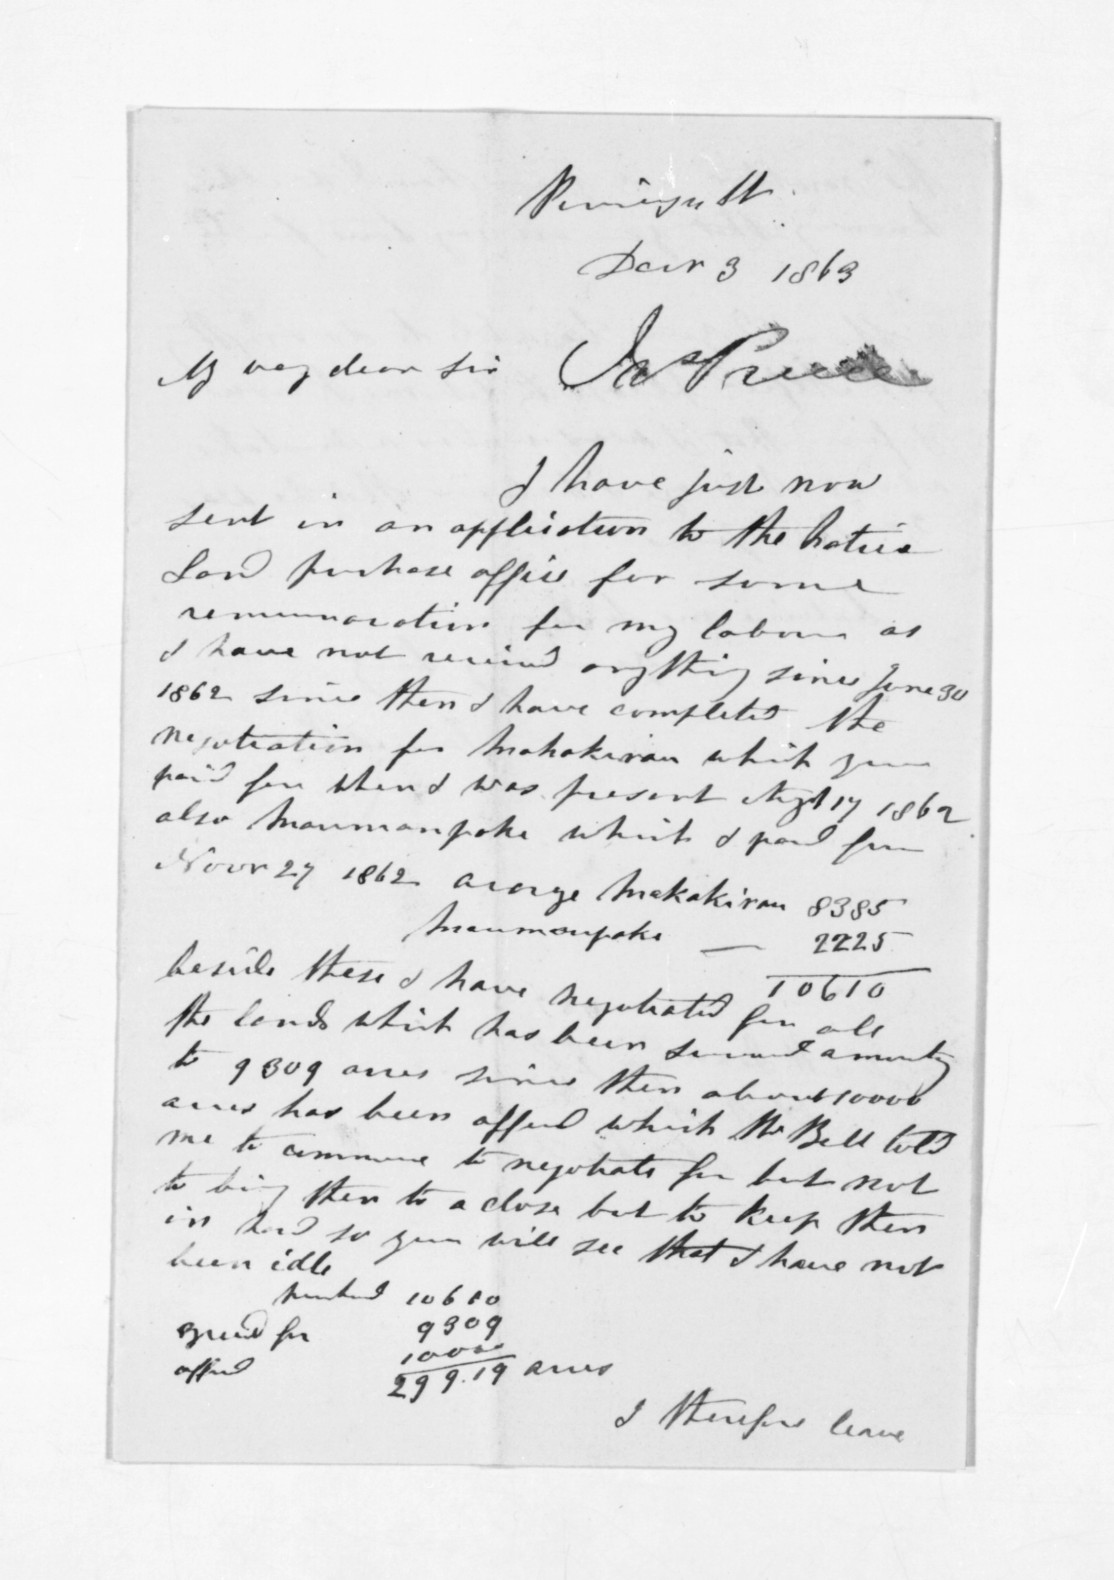 Decr 3 1863
My very dear Sir Jas Preece
I have just now
sent in an application to the Native
Land purchase office for some
remunaration for my labour as
I have not received anything since June 30
1862 since then I have completed the
negotiation for Mahakirau which you
paid for when I was present Augt 17 1862
also Maumaupaki which I paid for
Novr 27 1862 acerage Mahakirau 8385
Maumaupaki — 2225
10610
beside these I have negotiated for all
the lands which has been surveyed amounting
to 9309 acres since then about 10000
acres has been offered which Mr Bell told
me to commence to negotiate for but not
to bring them to a close but to keep them
in hand so you will see that I have not
been idle
purchased 10610
agreed for 9309
offered 10000
299.19 acres
I therefore leave